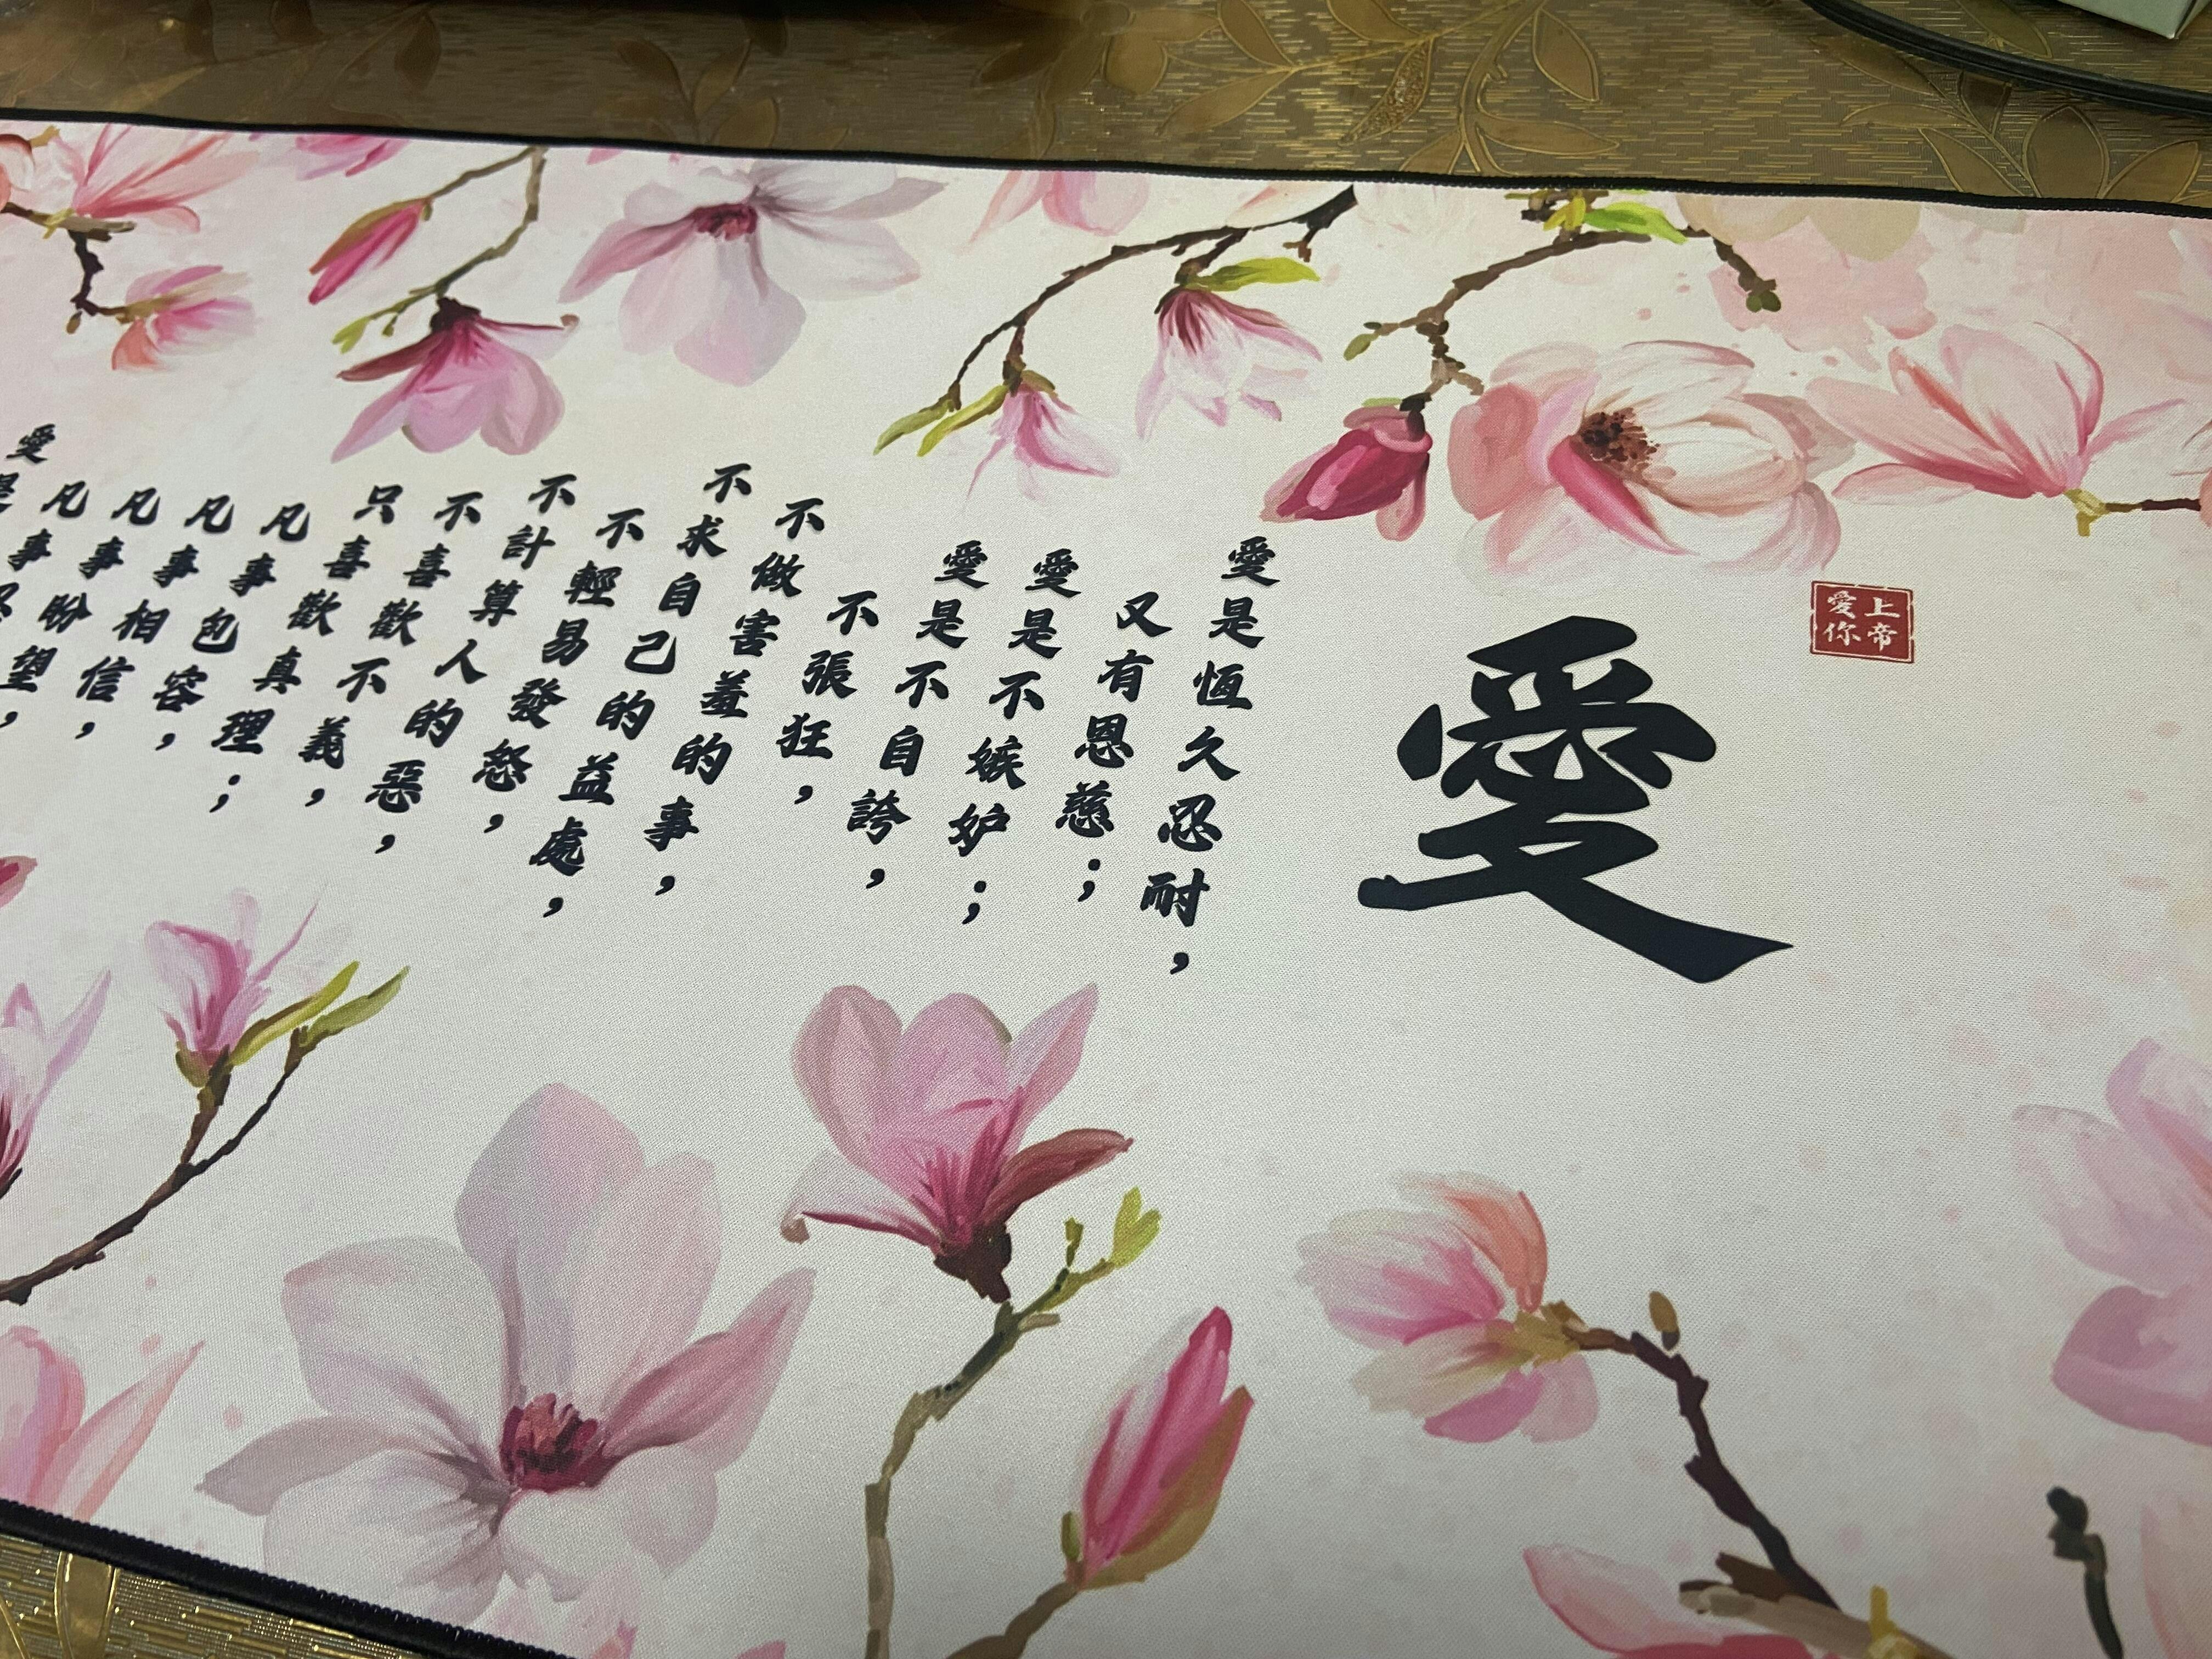 上帝
愛你
愛
愛是恆久忍耐，
又有恩慈；
愛是不嫉妒；
愛是不自誇，
不張狂，
不做害羞的事，
不求自己的益處，
不輕易發怒，
不計算人的惡，
不喜歡不義，
只喜歡真理；
凡事包容，
凡事相信，
凡事盼望，
凡事
愛是